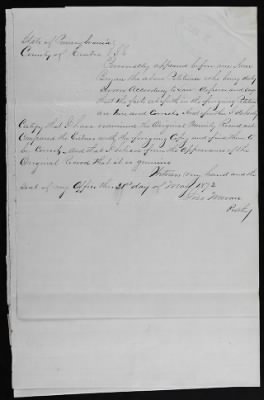 State of Pennsylvania
County of Centre } SS
Personally appeared before me
the above Petitioner who being duly
Sworn According to Law deposes and says
that the facts set forth in the foregoing Petition
are True and Correct, And further I do hereby
Certify that I have examined the Original Family Record and
Compared the Entries with the foregoing Copy and find them to
be Correct, And that I believe from the appearance of the
Original Record that it is genuine
Witness my hand and the
seal of my Office this day of May 1872